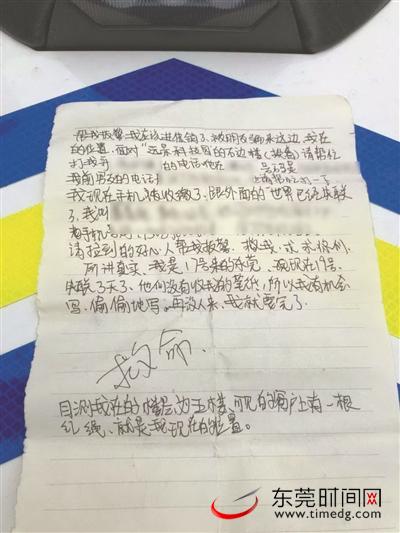 帮我报警,我在这进传销了,被朋友骗来这边,我在
的位置,面对“
科技园的右边楼(
)请帮忙
打我哥
的电话他在
号码是
我前男友的电话
我现在手机被收缴了,跟外面的世界已经失联
了,我叫
手机号
请捡到的好心人帮我报警,救我,求求你们
所讲真实,我是17号来的东莞,现在19号,
失联了3天了,他们没有收我的笔纸,所以我有机会
写,偷偷地写,再没人来,我就要完了
救命.
目测我在的楼层为五楼,可见的窗户上有一根
红绳,就是我现在的位置。
东莞时间网
www.timedg.com